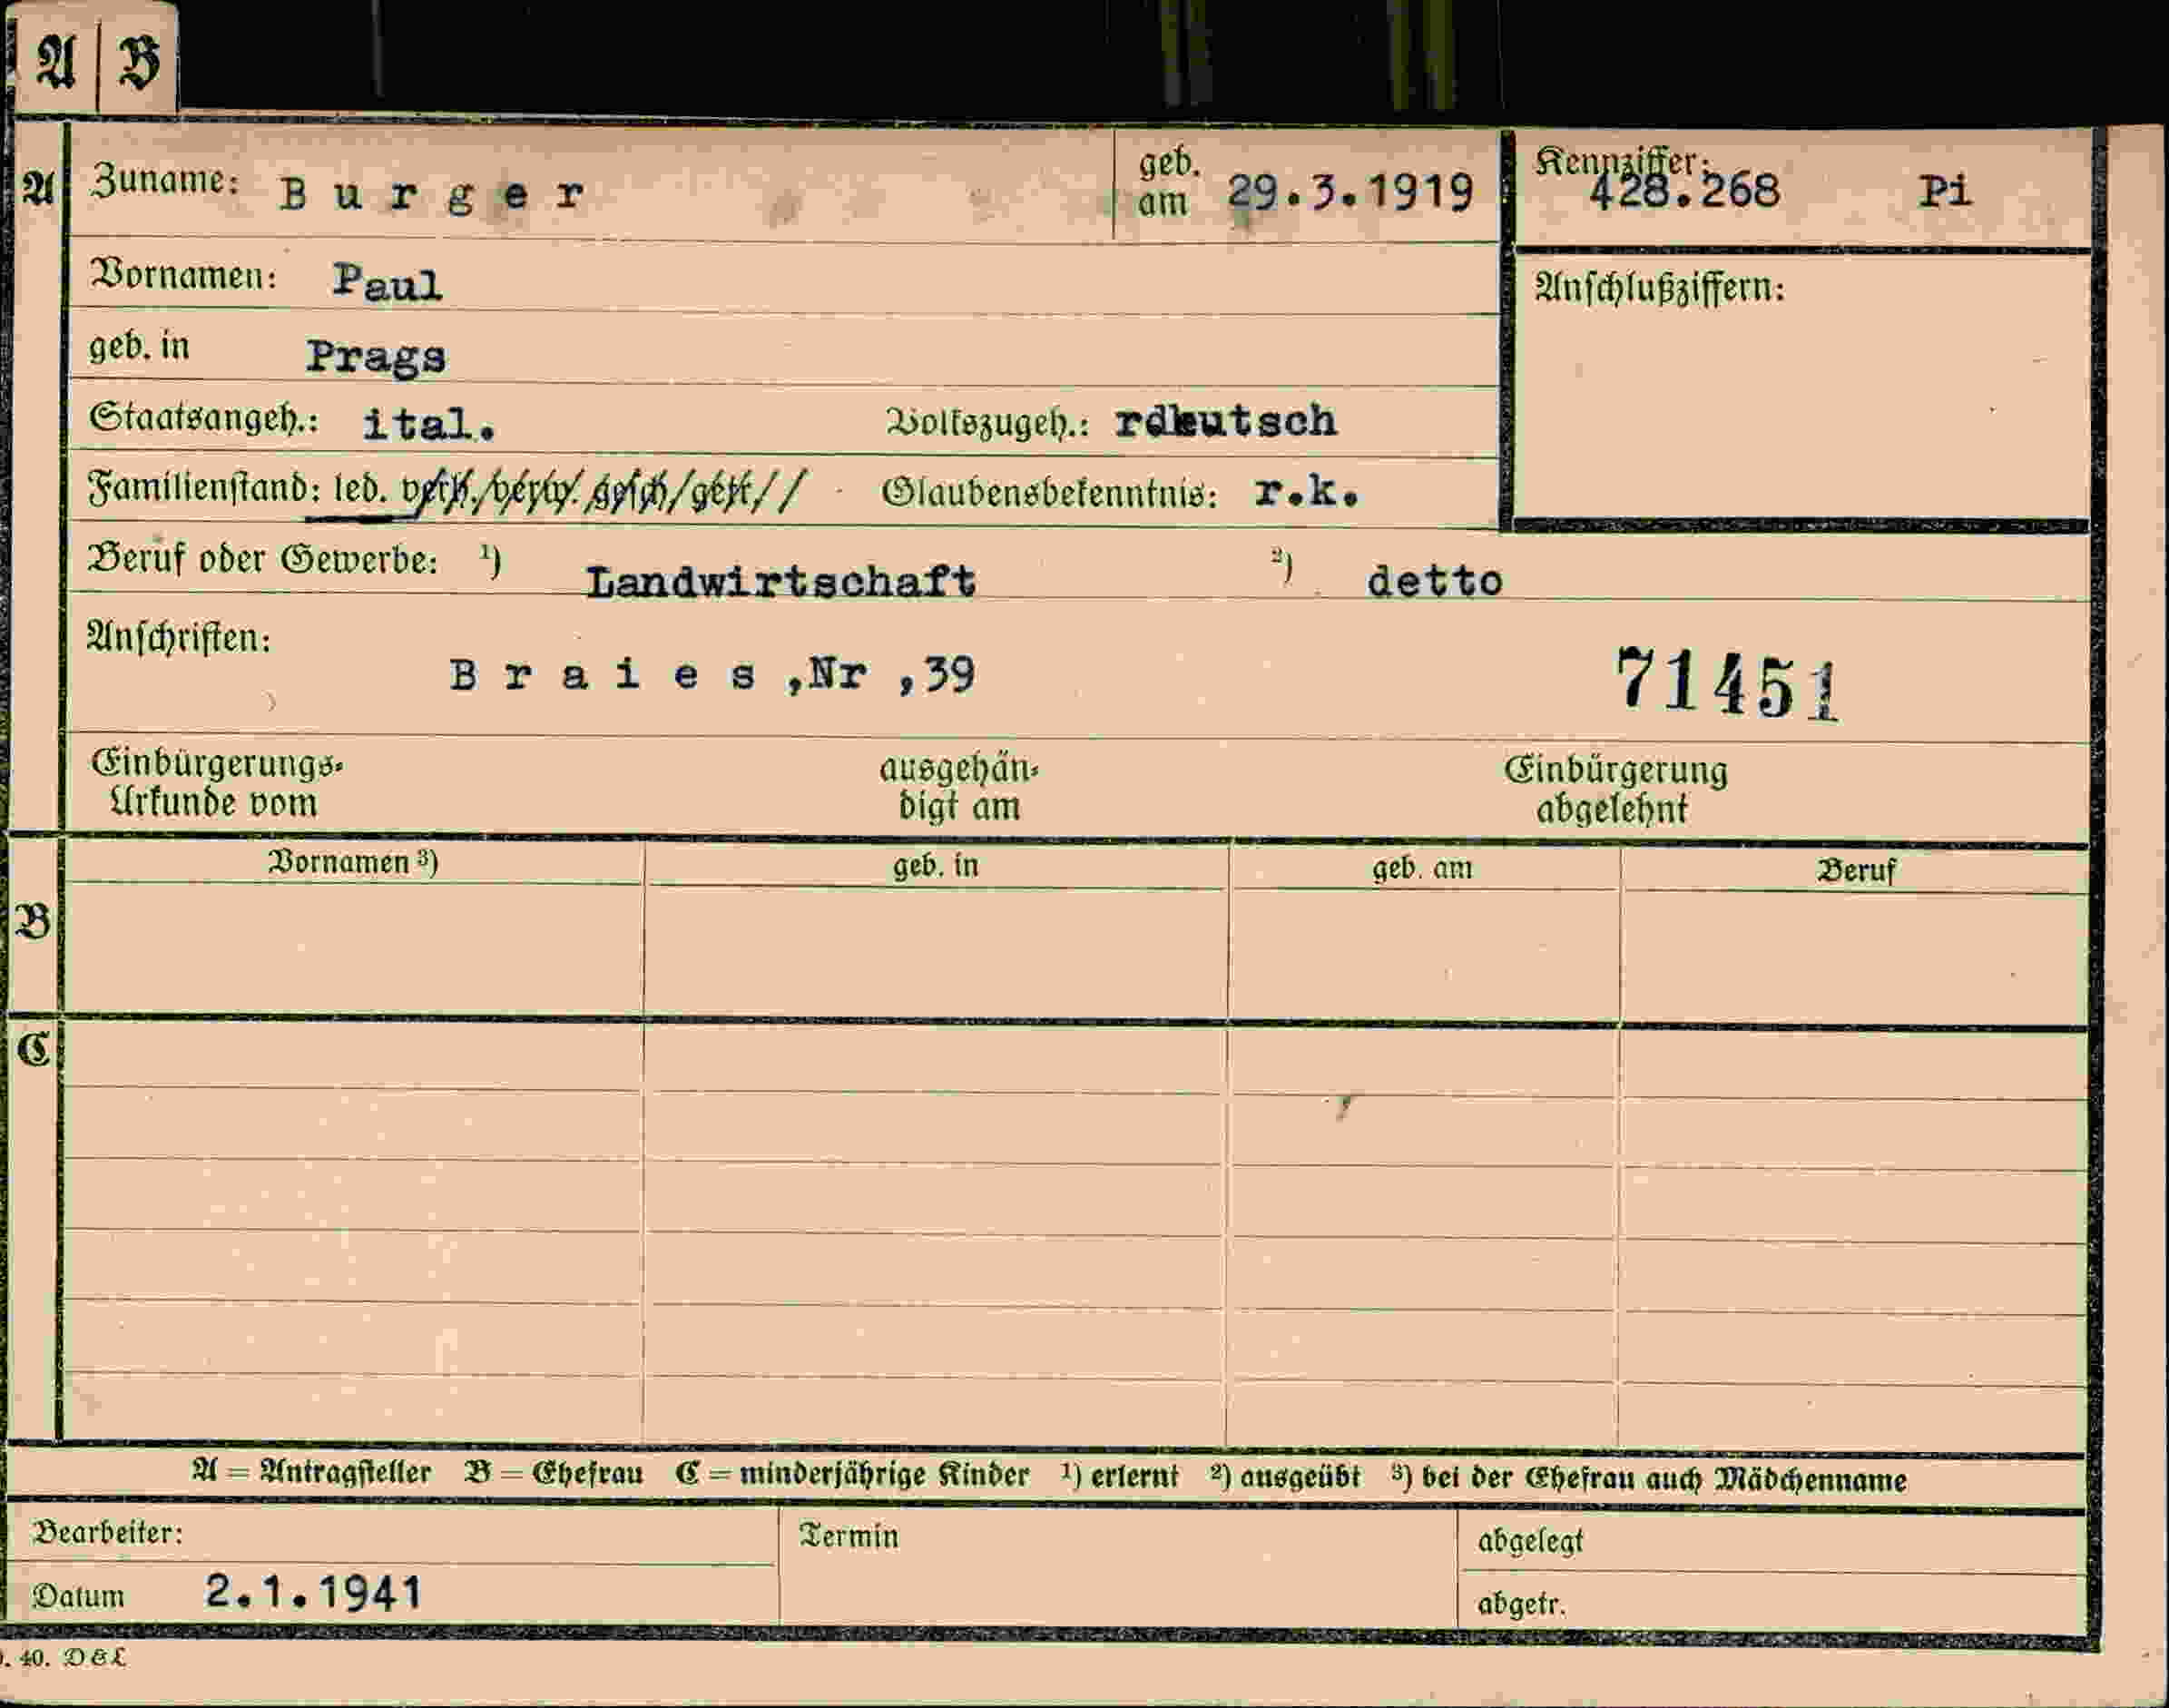 A B
A Zuname: Burger geb. am 29.3.1919 Kennziffer: 428.268 Pi
Vornamen: Paul
Anschlußziffern:
geb. in Prags
Staatsangeh.: ital. Volkszugeh.: deutsch
Familienstand: led. verh./verw. gesch/getr// Glaubensbekenntnis: r.k.
Beruf oder Gewerbe: ¹) Landwirtschaft ²) detto
Anschriften:
Braies,Nr ,39 71451
Einbürgerungs- ausgehän- Einbürgerung
Urkunde vom digt am abgelehnt
Vornamen ³) geb. in geb. am Beruf
B
C
A = Antragsteller B = Ehefrau C = minderjährige Kinder ¹) erlernt ²) ausgeübt ³) bei der Ehefrau auch Mädchenname
Bearbeiter: Termin abgelegt
Datum 2.1.1941 abgetr.
. 40. D & L